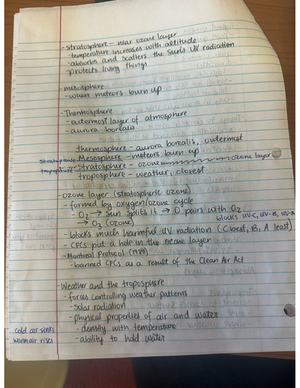 - stratosphere - near ozone layer
- temperature increases with altitude
- absorbs and scatters the Sun's UV radiation
- protects living things
- mesosphere
- where meteors burn up
- Thermosphere
- outermost layer of atmosphere
- aurora borealis
thermosphere - aurora borealis, outermost
Mesosphere - meteors burn up
Stratosphere - ozone
ozone layer
troposphere - weather, closest
- ozone layer (stratospheric ozone)
- formed by oxygen/ozone cycle
- O₂ → Sun splits it → O pairs with O₂
→ O₃ (ozone)
blocks UV-C, UV-B, UV-A
- blocks much harmful UV radiation (C best, B, A least)
- CFCs put a hole in the ozone layer
- Montreal Protocol
- banned CFCs as a result of the Clean Air Act
- Weather and the troposphere
- forces controlling weather patterns
- solar radiation
- physical properties of air and water
- density with temperature
cold air sinks
warm air rises
- ability to hold water